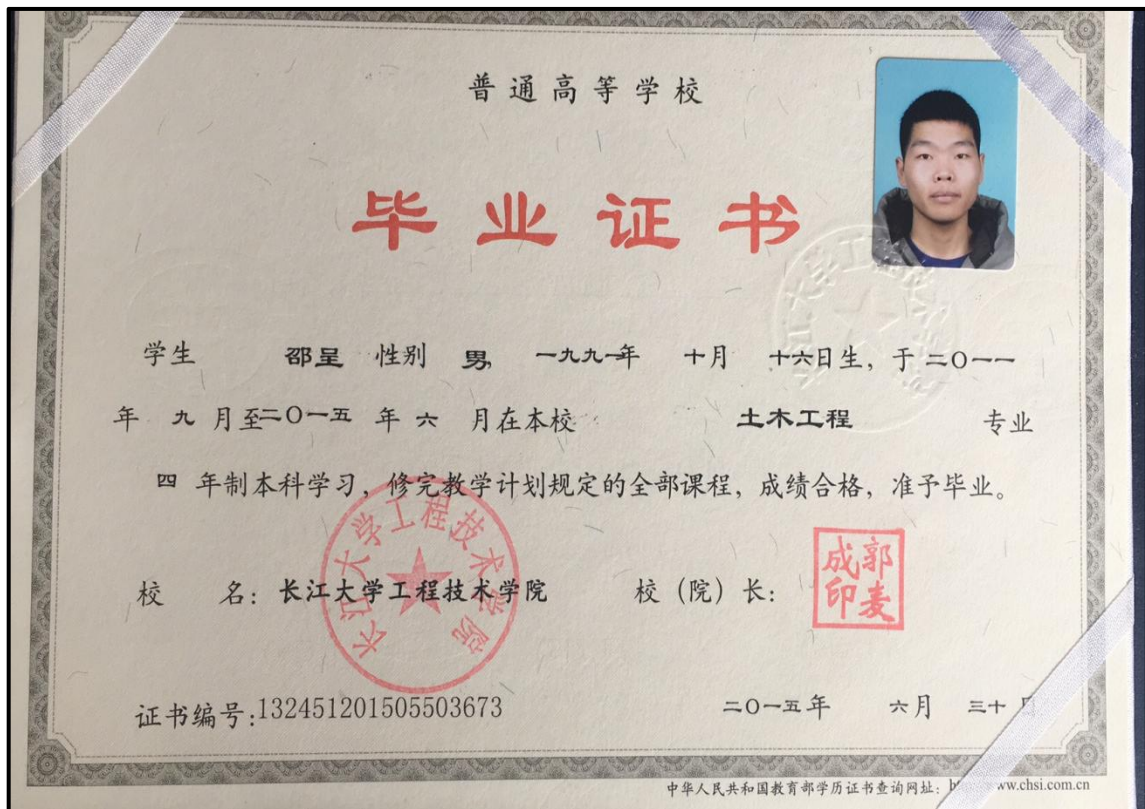 普通高等学校
毕业证书
学生 邵呈 性别 男, 一九九一年 十月 十六日生, 于 二〇一一
年 九 月至二〇一五 年 六 月在本校 土木工程 专业
四 年制本科学习, 修完教学计划规定的全部课程, 成绩合格, 准予毕业。
校 名: 长江大学工程技术学院 校 (院) 长:
长江大学工程技术学院
郭麦成印
证书编号:132451201505503673 二〇一五年 六月 三十日
中华人民共和国教育部学历证书查询网址: www.chsi.com.cn